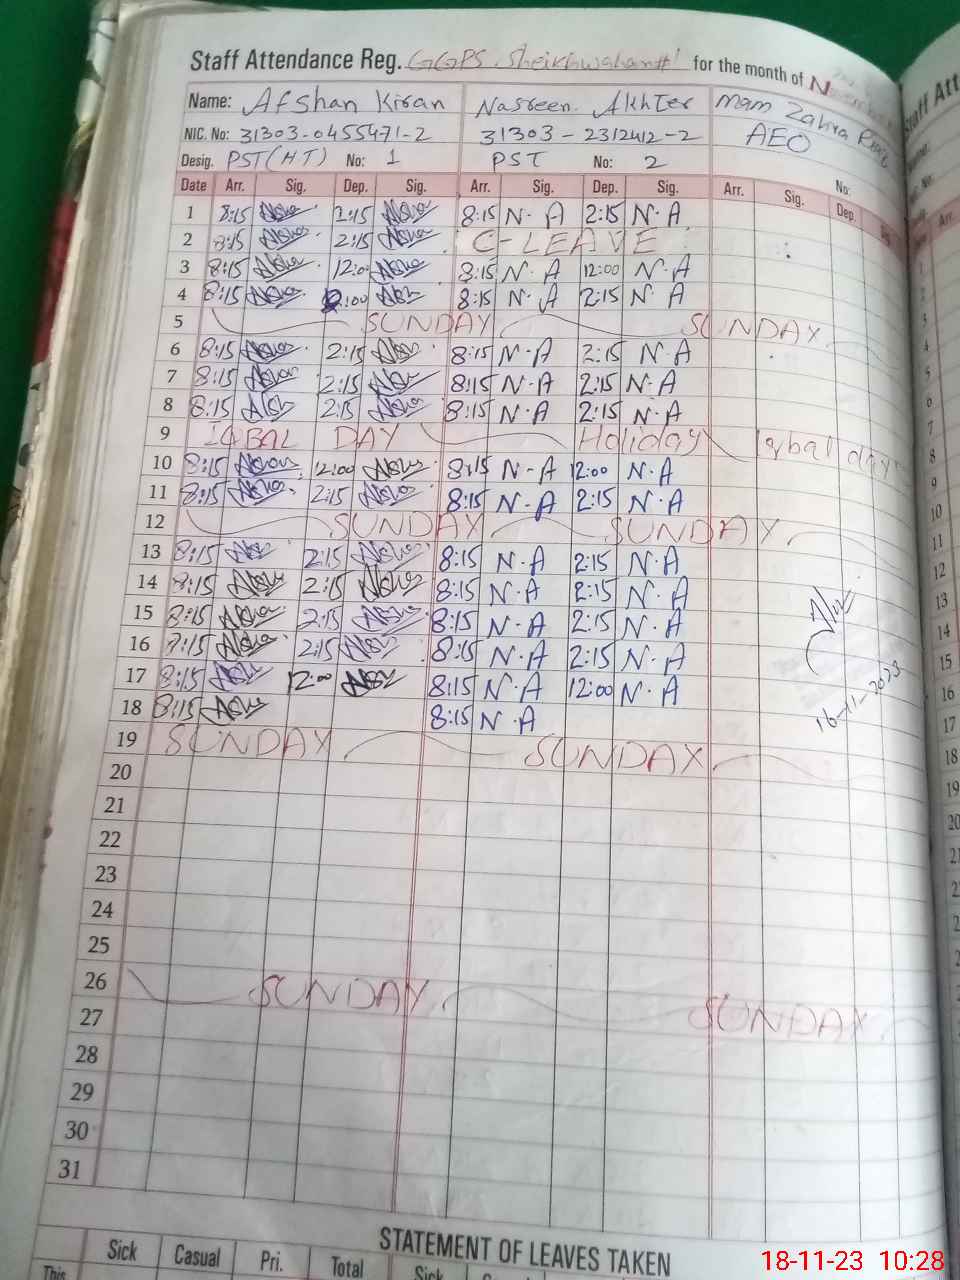 Staff Attendance Reg. GGPS Sheikhwahan#1 for the month of
Name: Afshan Kiran Nasreen. Akhter Mam Zahra
NIC. No: 31303-0455471-2 31303-2312412-2 AEO
Desig. PST(HT) No: 1 PST No: 2 No:
Date Arr. Sig. Dep. Sig. Arr. Sig. Dep. Sig. Arr. Sig. Dep.
1 8:15 2:15 8:15 N.A 2:15 N.A
2 8:15 2:15 C-LEAVE
3 8:15 12:00 8:15 N.A 12:00 N.A
4 8:15 2:00 8:15 N.A 2:15 N.A
5 SUNDAY SUNDAY
6 8:15 2:15 8:15 N-A 2:15 N.A
7 8:15 2:15 8:15 N-A 2:15 N.A
8 8:15 2:15 8:15 N-A 2:15 N.A
9 IQBAL DAY Holiday Iqbal day
10 8:15 12:00 8:15 N-A 12:00 N.A
11 8:15 2:15 8:15 N-A 2:15 N.A
12 SUNDAY SUNDAY
13 8:15 2:15 8:15 N.A 2:15 N.A
14 8:15 2:15 8:15 N.A 2:15 N.A
15 8:15 2:15 8:15 N.A 2:15 N.A
16 8:15 2:15 8:15 N.A 2:15 N.A
17 8:15 12:00 8:15 N.A 12:00 N.A
18 8:15 8:15 N.A
16-11-2023
19 SUNDAY SUNDAY
20
21
22
23
24
25
26 SUNDAY SUNDAY
27
28
29
30
31
STATEMENT OF LEAVES TAKEN
Sick Casual Pri. Total Sick
This
18-11-23 10:28